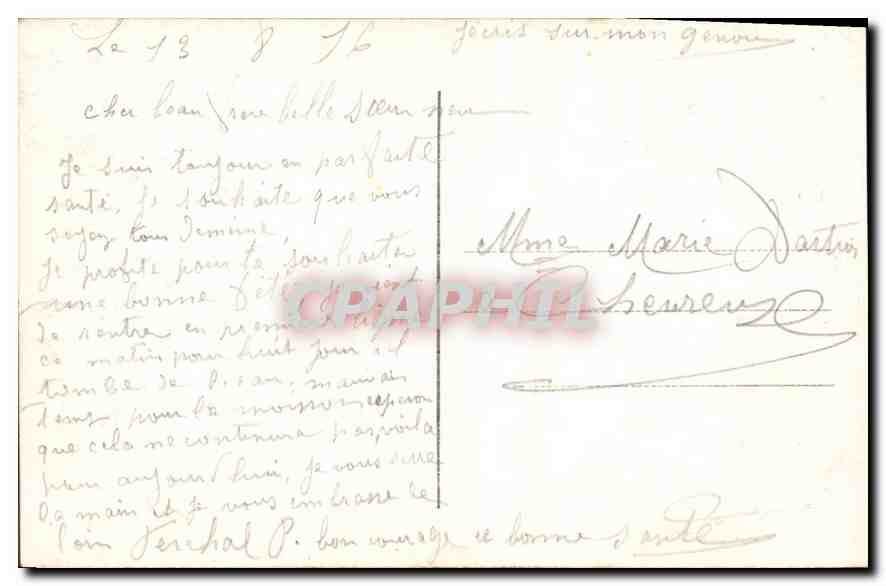 Le 13 8 16 jecris sur mon genou
cher beau frere belle sœur neveu
Je suis toujour en parfaite
santé, Je souhaite que vous
soyez tous demême,
Je profite pour te souhaiter
une bonne fête, je vient
de rentre en premiere ligne
ce matin pour huit jour il
tombe de l'eau, mauvais
temp pour la moisson esperon
que cela ne continura pas, voila
pour aujourd'hui, Je vous serre
la main et Je vous embrasse de
loin Verchal P. bon courage et bonne santé
Mme Marie Dartrois
Cheureux
CPAPHIL